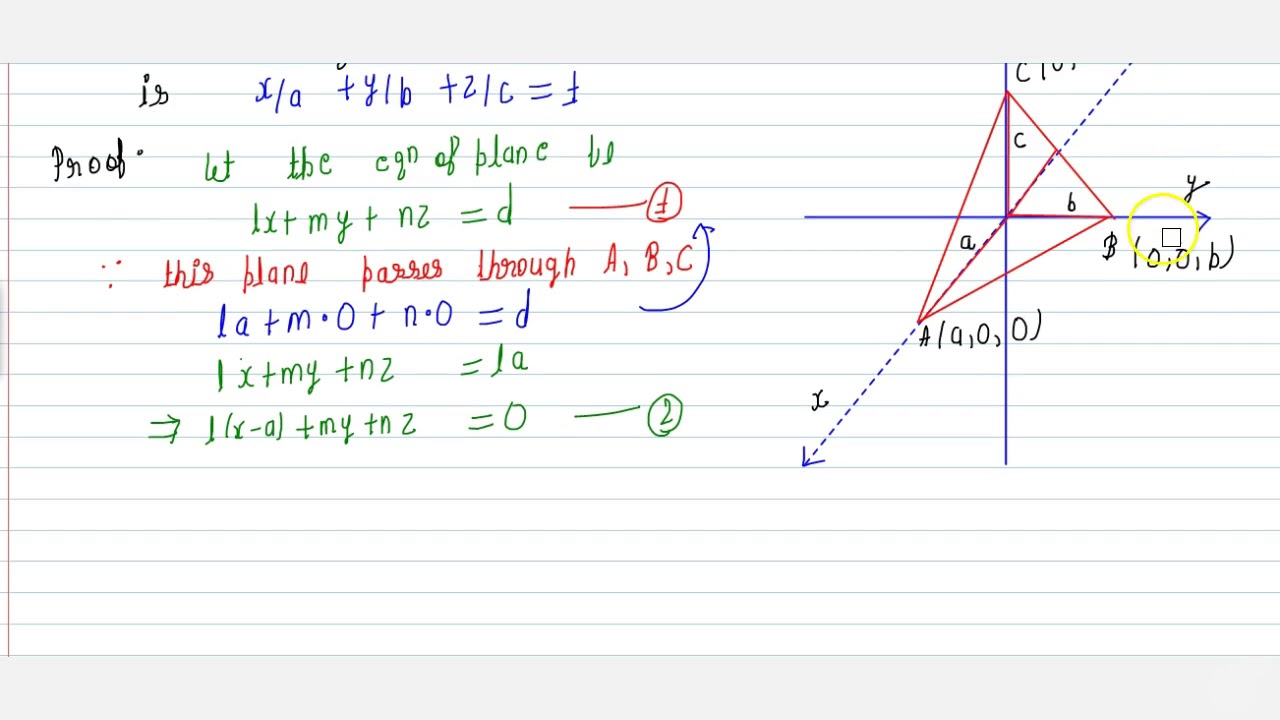 is x/a + y/b + z/c = 1
Proof: let the eqn of plane be
lx + my + nz = d — 1
∵ this plane passes through A, B, C
la + m·0 + n·0 = d
lx + my + nz = la
⇒ l(x-a) + my + nz = 0 — 2
C (0,
C
y
b
a
B (0,0,b)
A(a,0,0)
x